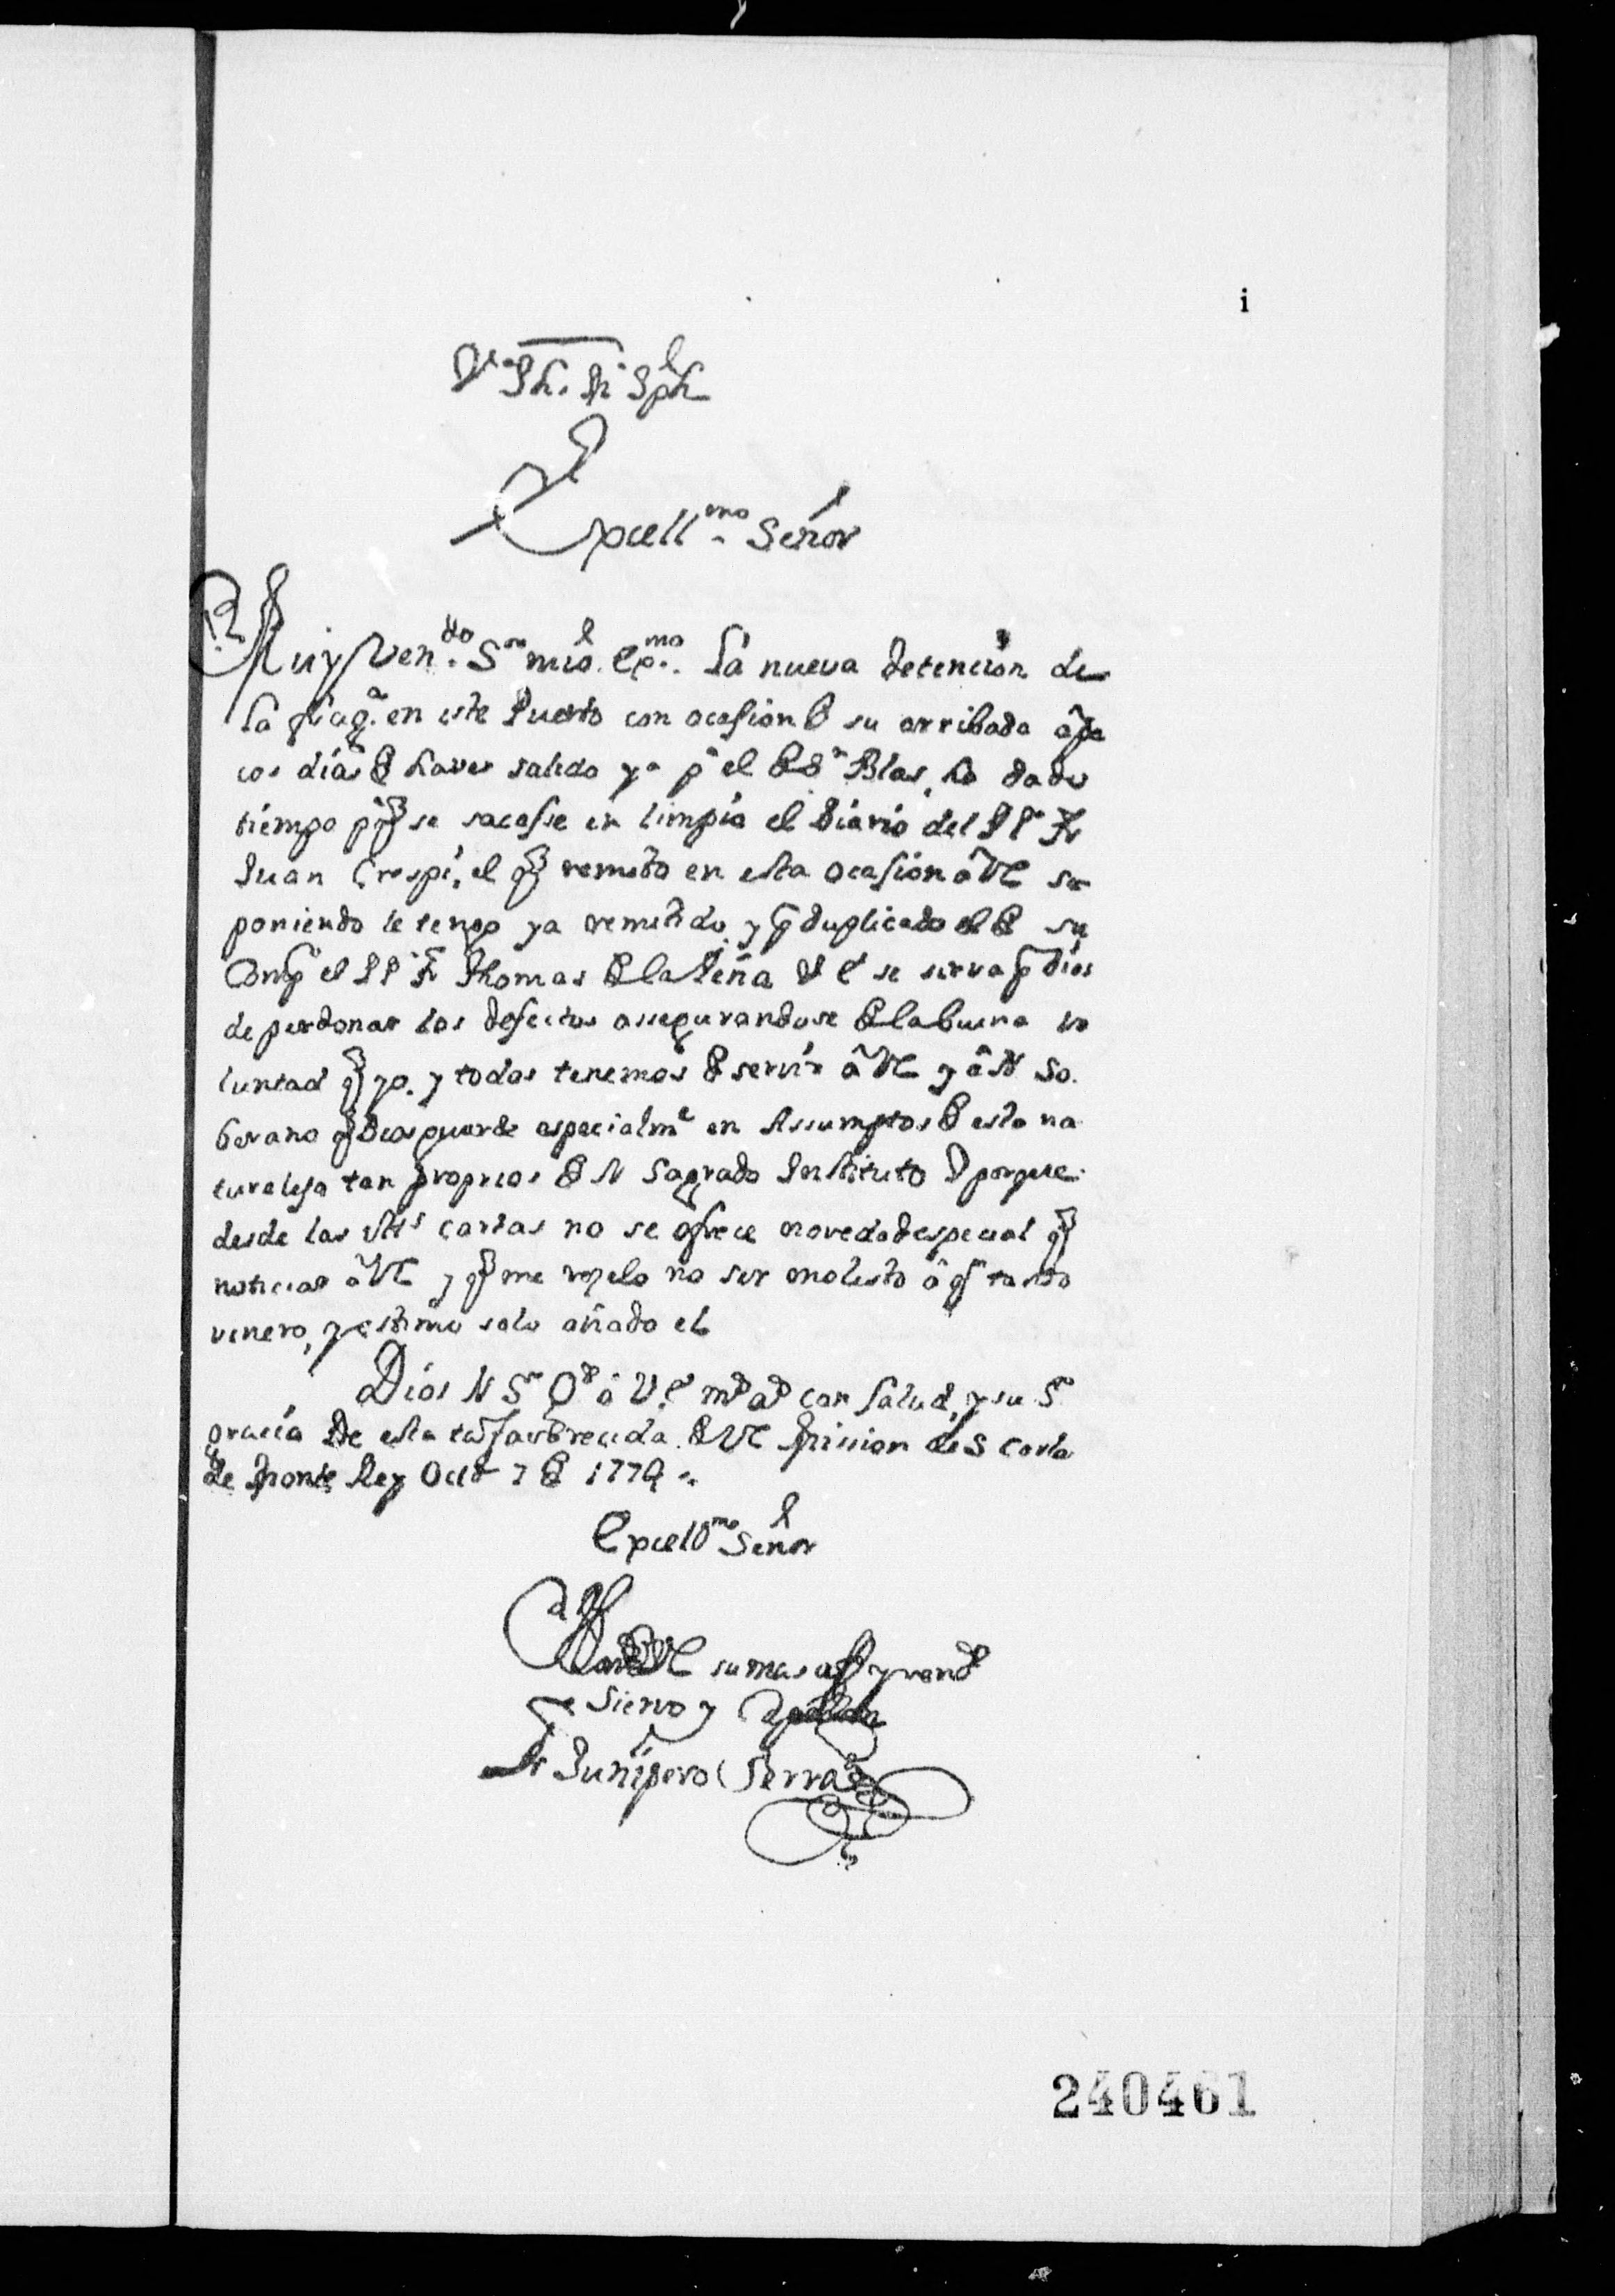 i
Jhs. M. Jph
Excell.mo Señor
Muy Ven.do S.or mio Ex.mo La nueva detencion de
la frag.ta en este Puerto con ocasion de su arribada â po
cos dias de haver salido ya p.a el de S.n Blas, ha dado
tiempo p.a q̃ se sacasse en limpio el Diario del P P.r Fr
Juan Crespi, el q̃ remito en esta ocasion â VE su
poniendo le tengo ya remitido, y p̃ duplicado el de su
Comp.o el P P.r Fr Thomas de la Peña V E se sirva p̃ Dios
de perdonar los defectos assegurandose de la buena vo
luntad q̃ yo, y todos tenemos de servir â VE y â N So
berano q̃ Dios guarde especialm.e en Assumptos de esta na
turalesa tan proprios de N Sagrado Instituto Y porque
desde las cartas no se ofrece novedad especial q̃
noticiar â VE y q̃ me rezelo no ser molesto â q.n tanto
venero, y estimo solo añado el
Dios N S.r G.de â V E m.s a.s con salud, y su S.ta
gracia De esta favorecida de VE Mission de S Carlos
de Monte Rey Oct.e 7 de 1774
Excell.mo Señor
B L M de VE su mas af.to y rend.do
Siervo y Capellan
Fr Junipero Serra
240461